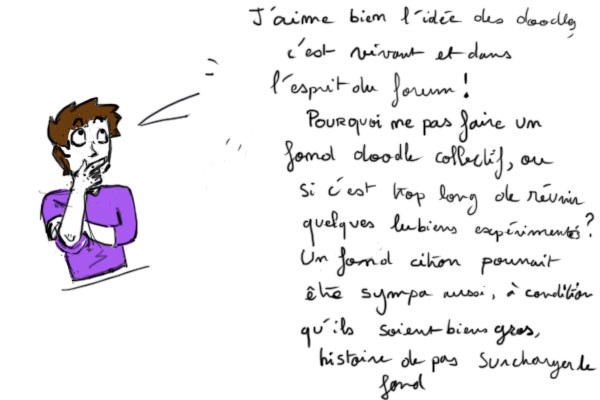 J'aime bien l'idée des doodles
c'est vivant et dans
l'esprit du forum !
Pourquoi ne pas faire un
fond doodle collectif, ou
si c'est trop long de réunir
quelques lubiens expérimentés ?
Un fond citron pourrait
être sympa aussi, à condition
qu'ils soient biens gros,
histoire de pas surcharger le
fond